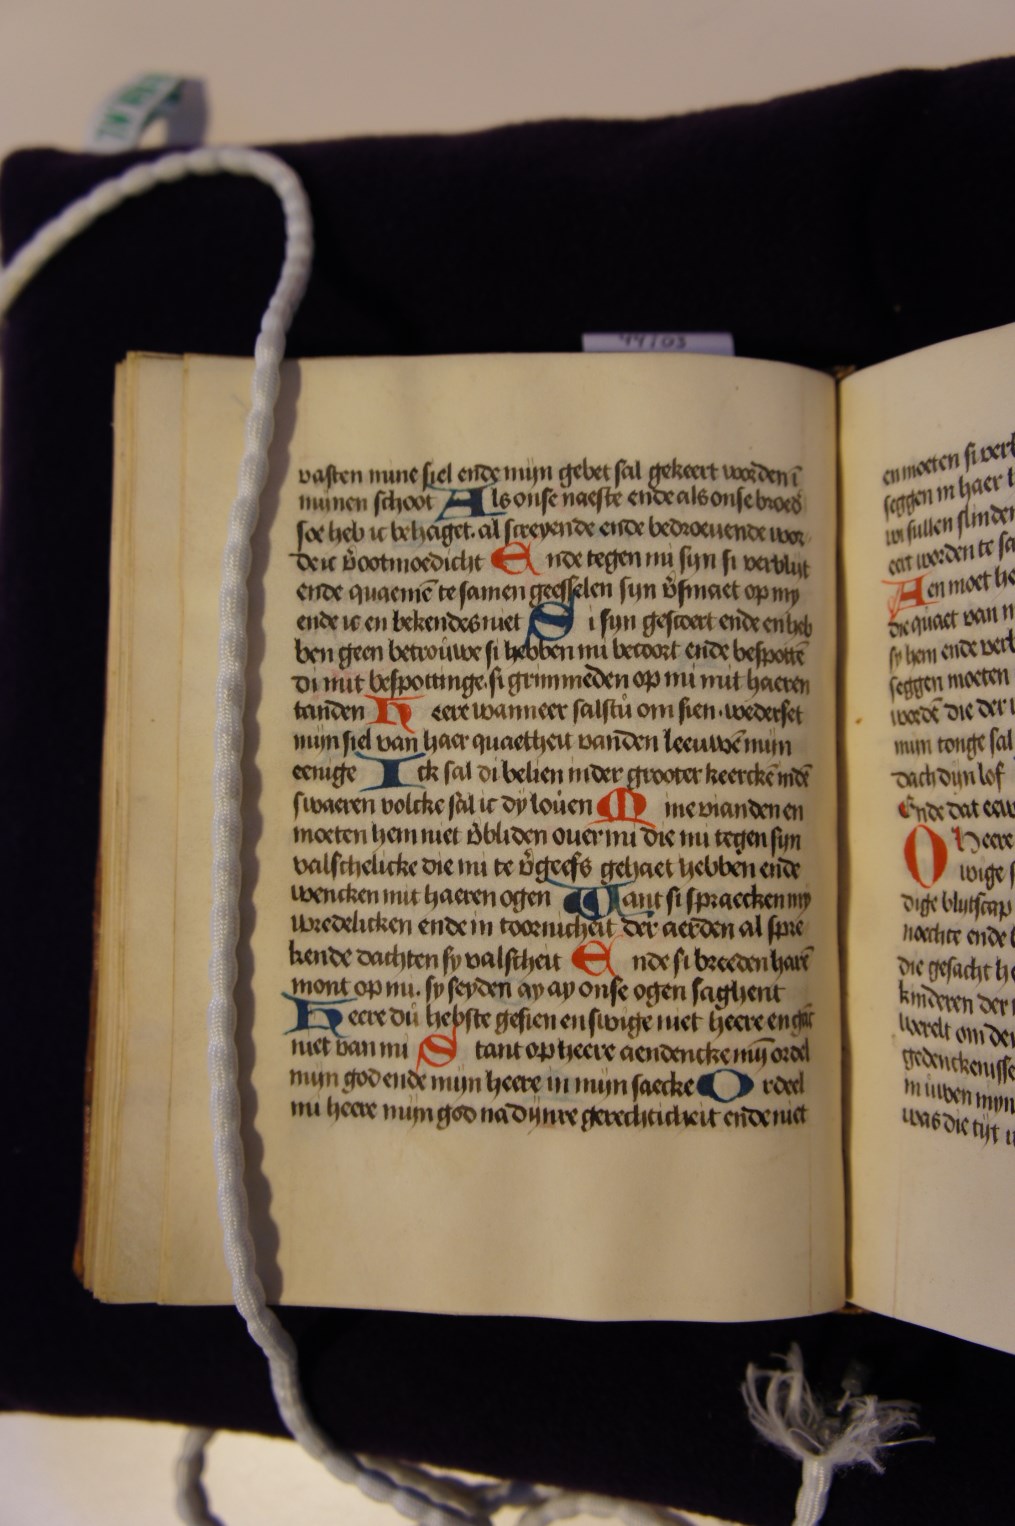 vasten mine siel en̄de mijn gebet sal gekeert worden ī
minen schoot Als onse naeste ende als onse broed
soe heb ic behaget. al screyende ende bedroeuende wor
de ic v̄ootmoedicht Ende tegen mi sijn si verblijt
ende quamē te samen geesselen sijn v̄smaet op my
ende ic en bekendes niet Si sijn gescoert ende en heb
ben geen betrouwe si hebben mi becoort ende bespottē
di mit bespottinge. si grimmeden op mi mit haeren
tanden Heere wanneer salstu om sien. wederset
mijn siel van haer quaetheit vanden leeuwē mijn
eenige Ick sal di belien in der grooter keerckē in dē
swaeren volcke sal ic dy louen Mine vianden en
moeten hem niet v̄bliden ouer mi die mi tegen sijn
valschelicke die mi te v̄geefs gehaet hebben ende
wencken mit haeren ogen Want si spraecken my
vredelicken ende in toornicheit der aerden al spre
kende dachten sy valscheit Ende si breeden harē
mont op mi. sy seyden ay ay onse ogen saghent
Heere du hebste gesien en swige niet heere en gāc
niet van mi Stant op heere aendencke mij ordel
mijn god ende mijn heere in mijn saecke Ordeel
mi heere mijn god na dijnre gerechticheit en̄de niet
en moeten si verb
seggen in haer
wi sullen
eert worden te sa
Aen moet he
die quaet van m
sy hem ende verb
seggen moeten
wordē die der
mijn tonge sal
dach dijn lof
Ende dat eew
O Heere
wige
dige blijtscap
noechte ende
die gesacht he
kinderen der
werelt om der
gedenckenisse
in uwen
was die tijt